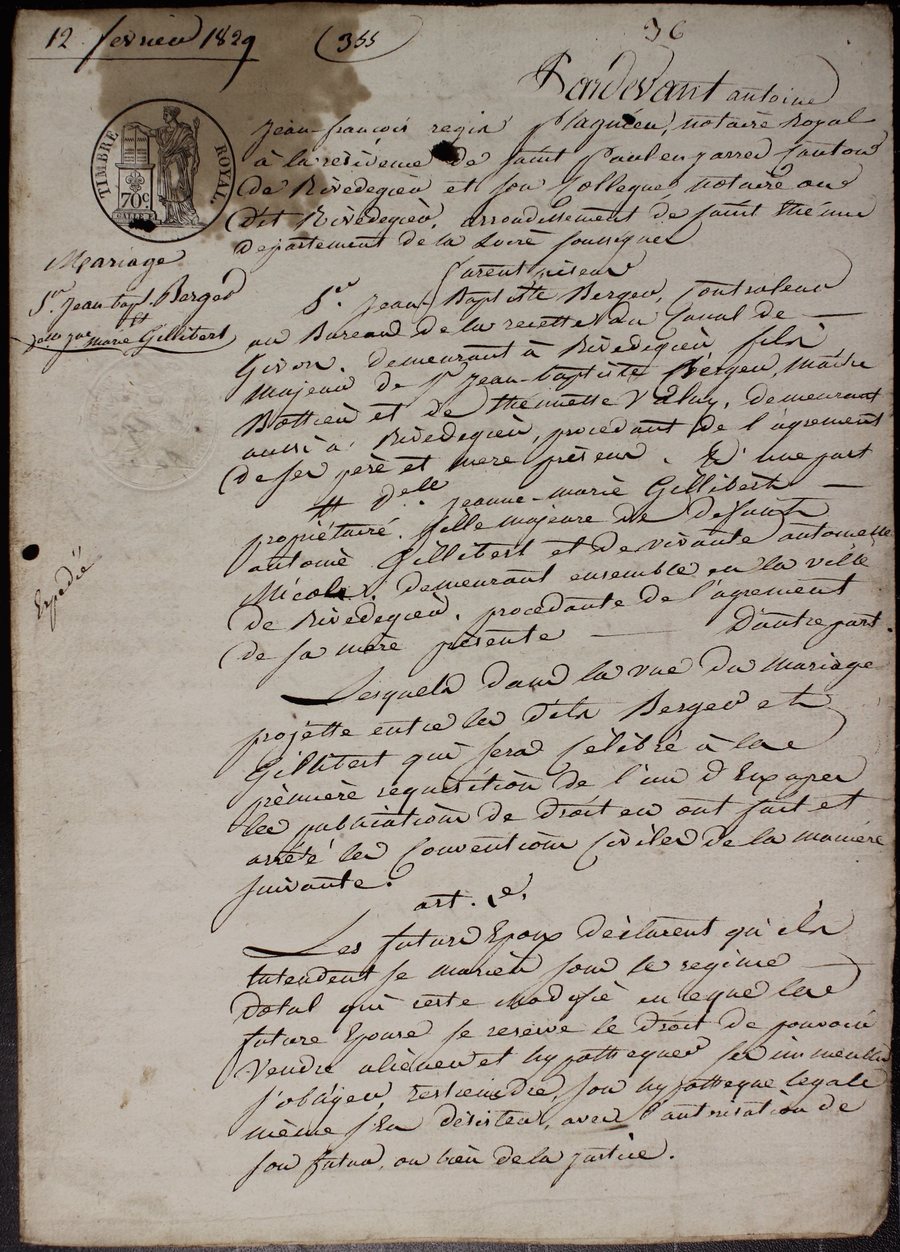 12 fevrier 1829 (355)
36
Pardevant antoine
jean-françois regis plagnieu, notaire Royal
à la residence de saint Paul en jarret canton
de Rivedegier et son collegue notaire au
dit Rivedegier, arrondissement de saint Etienne
departement de la Loire soussignés
furent presens
Sr. jean-Baptiste Berger, Controleur
au Bureau de la recette du Canal de
Givors, demeurant à Rivedegier fils
majeur de Sr jean-baptiste Berger, maître
Bottier et de thiennette Valuy, demeurant
aussi à Rivedegier, procedant de l'agrement
de ses pere et mere presens, d'une part
Et Delle jeanne-marie Gillibert
propriétaire, fille majeure de defunt
antoine Gillibert et de vivante antoinette
Nicolas, demeurant ensemble en la ville
de Rivedegier, procedante de l'agrement
de sa mère presente D'autre part.
Lesquels dans la vue du mariage
projetté entre les dits Berger et
Gillibert qui sera célébré à la
première requisition de l'un d'Eux après
les publications de droit en ont fait et
arrêté les Conventions Civiles de la manière
suivante.
art. 1er.
Les futurs Epoux déclarent qu'ils
entendent se marier sous le regime
Dotal qui reste modifié en ce que la
future Epouse se reserve le droit de pouvoir
vendre aliener et hypothequer ses immeubles
s'obliger, restreindre son hypotheque legale
même s'en désister, avec l'autorisation de
son futur, ou bien de la justice.
TIMBRE ROYAL
70c
Mariage
Sr. jean-bapt. Berger
Et
marie Gillibert
Expedié